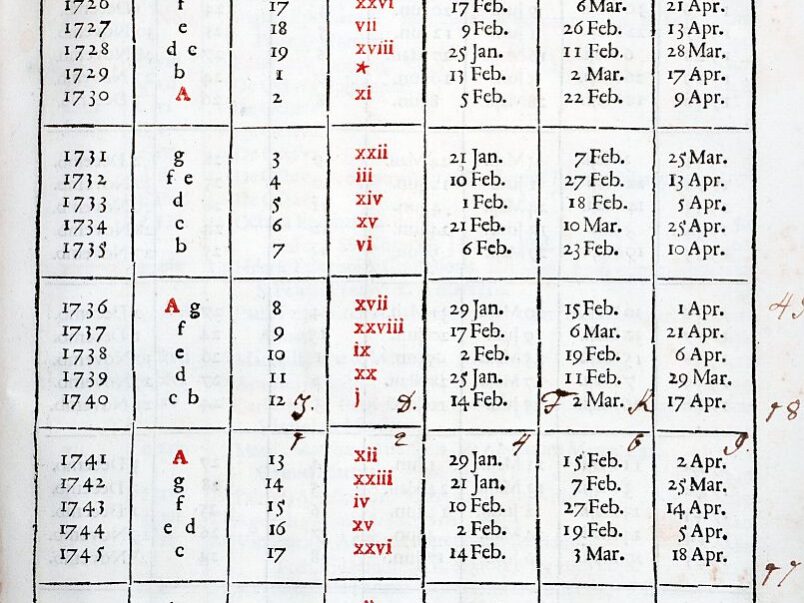 1726 f 17 xxvi 17 Feb. 6 Mar. 21 Apr.
1727 e 18 vii 9 Feb. 26 Feb. 13 Apr.
1728 d c 19 xviii 25 Jan. 11 Feb. 28 Mar.
1729 b 1 * 13 Feb. 2 Mar. 17 Apr.
1730 A 2 xi 5 Feb. 22 Feb. 9 Apr.
1731 g 3 xxii 21 Jan. 7 Feb. 25 Mar.
1732 f e 4 iii 10 Feb. 27 Feb. 13 Apr.
1733 d 5 xiv 1 Feb. 18 Feb. 5 Apr.
1734 c 6 xv 21 Feb. 10 Mar. 25 Apr.
1735 b 7 vi 6 Feb. 23 Feb. 10 Apr.
1736 A g 8 xvii 29 Jan. 15 Feb. 1 Apr.
1737 f 9 xxviii 17 Feb. 6 Mar. 21 Apr.
1738 e 10 ix 2 Feb. 19 Feb. 6 Apr.
1739 d 11 xx 25 Jan. 11 Feb. 29 Mar.
1740 c b 12 j 14 Feb. 2 Mar. 17 Apr.
1741 A 13 xii 29 Jan. 15 Feb. 2 Apr.
1742 g 14 xxiii 21 Jan. 7 Feb. 25 Mar.
1743 f 15 iv 10 Feb. 27 Feb. 14 Apr.
1744 e d 16 xv 2 Feb. 19 Feb. 5 Apr.
1745 c 17 xxvi 14 Feb. 3 Mar. 18 Apr.